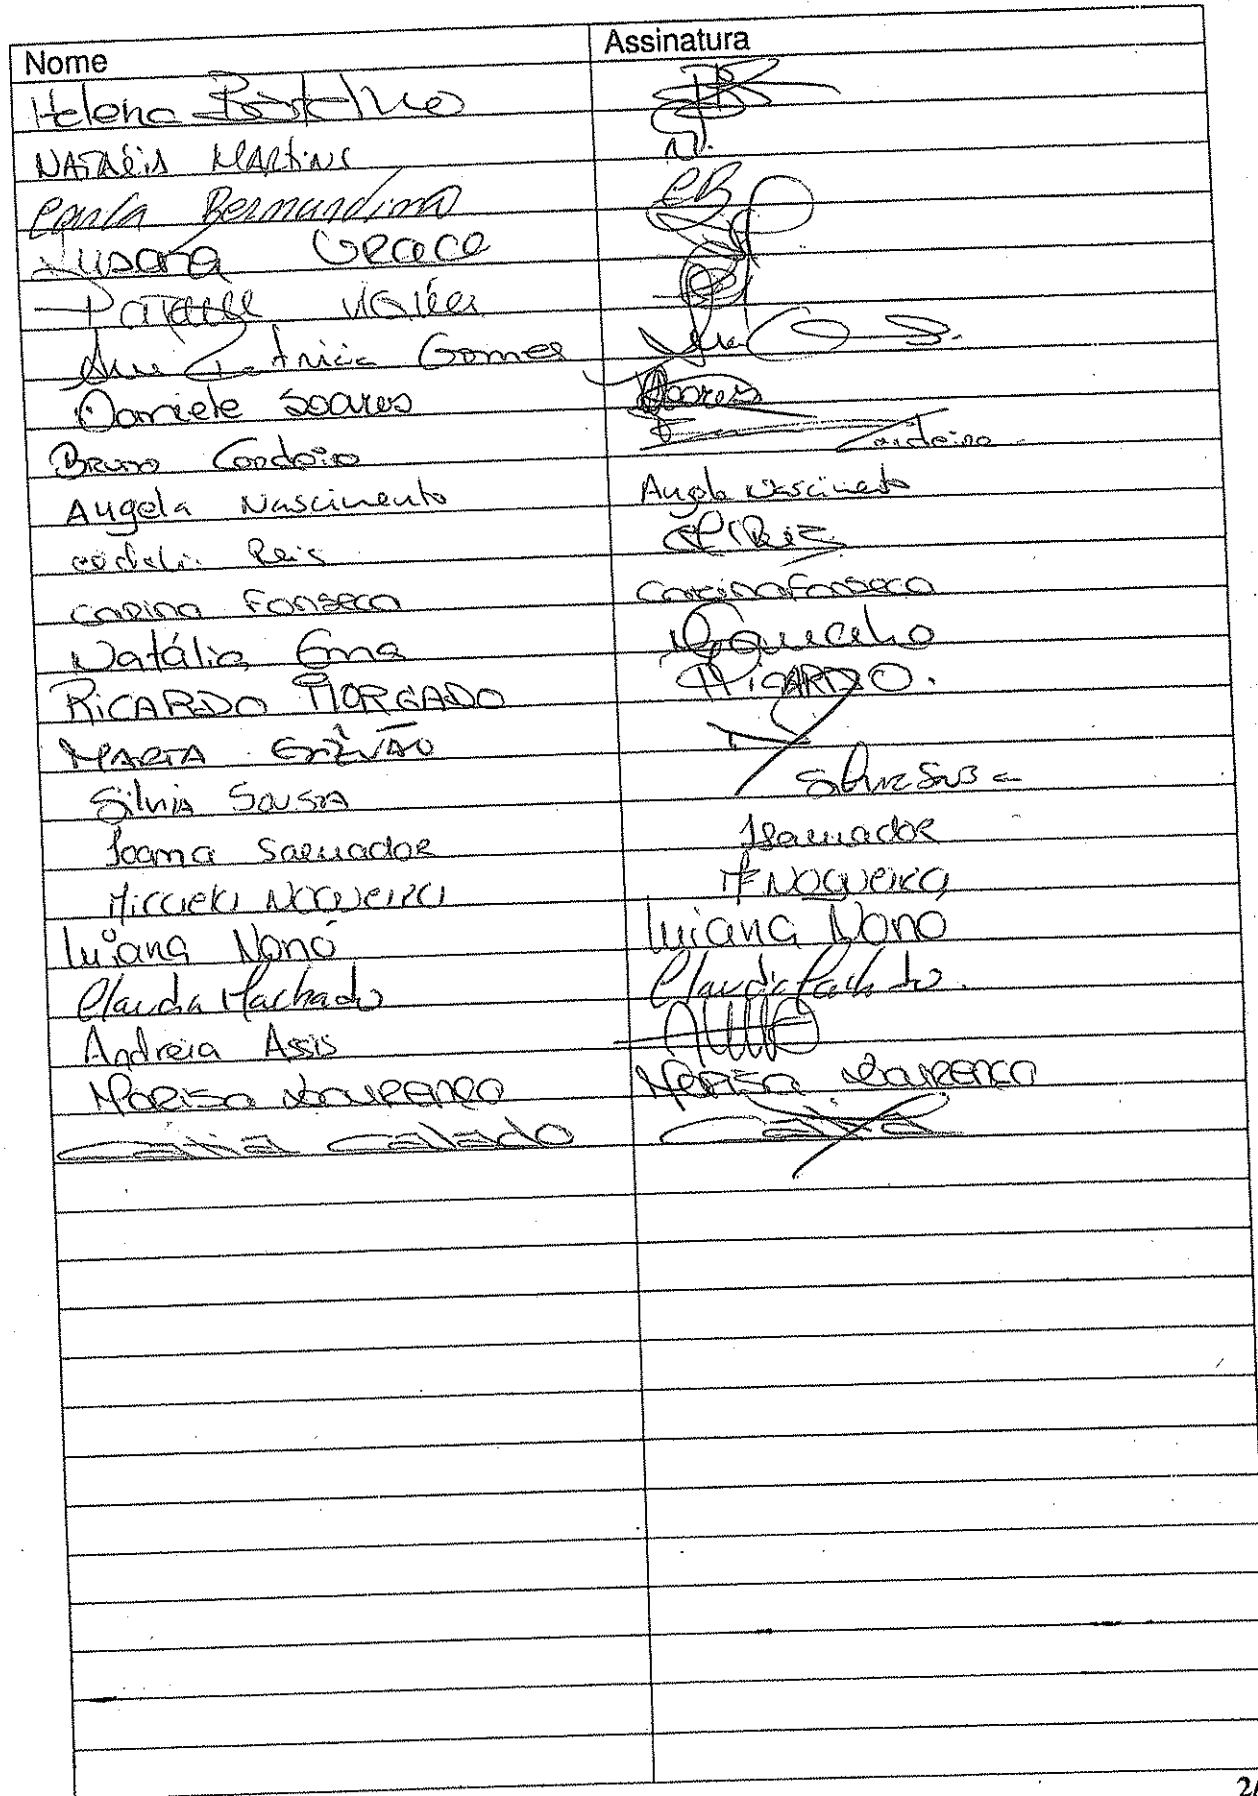 Nome Assinatura
Helena Botelho
NATÁLIA MARTINS N.
Carla Bernardino CB
Susana Graça
Patrícia
Ana Patrícia Gomes Ana
Daniele Soares Soares
Bruno Cordeiro Cordeiro
Angela Nascimento Angela Nascimento
Reis
CARINA FONSECA Carina Fonseca
Natália Ema
RICARDO MORGADO RICARDO.
MARTA ESTÊVÃO
Silvia SOUSA
Joana Salvador JSalvador
Micaela NOGUEIRA NOGUEIRA
Luiana Nonó Luiana Nono
Claudia Machado Claudia Machado.
Andreia Assis
MARISA LOURENÇO MARISA LOURENÇO
Cátia Calado Cátia
2/